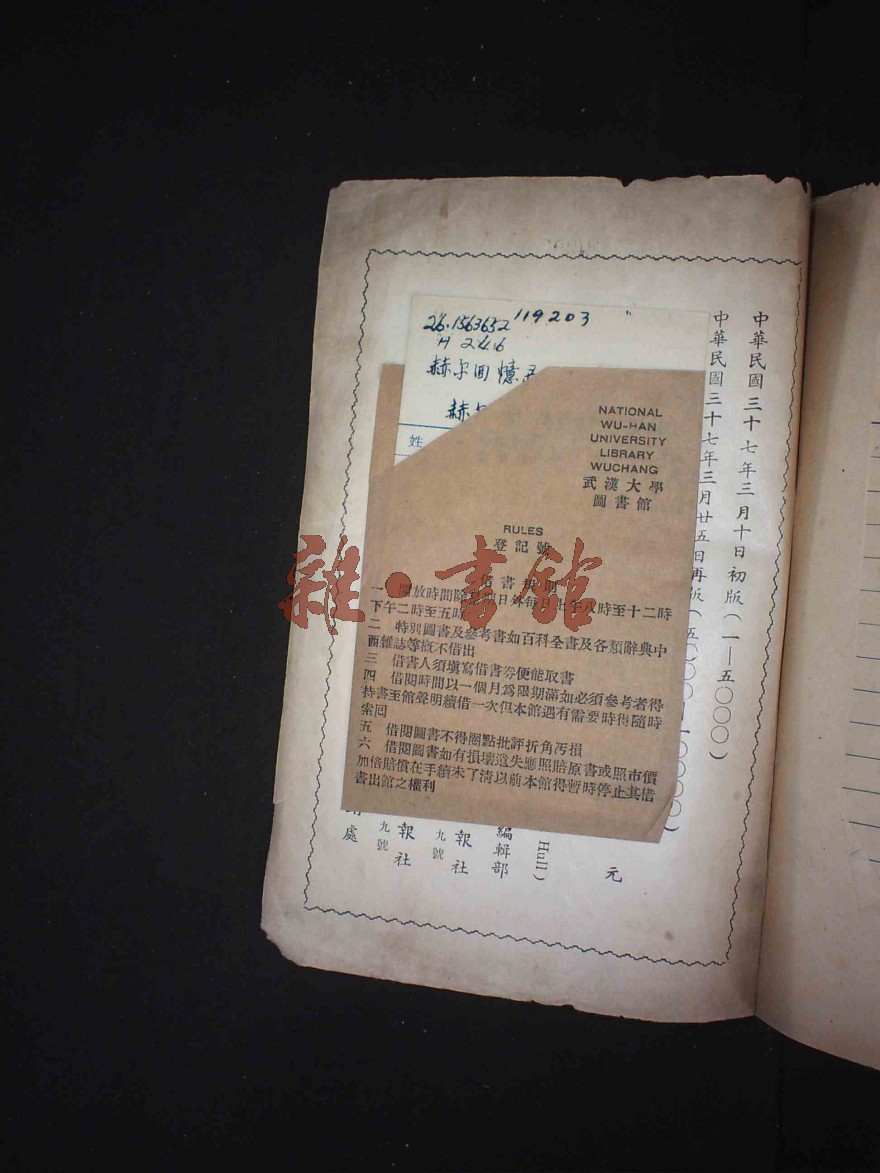 中華民國三十七年三月十日初版（一—五〇〇〇）
中華民國三十七年三月廿五日再版（五〇〇
元
Hull)
編輯部
報社
九號
報社
九號
處
26.1563652 119203
H 246
赫尔回憶
赫
姓
NATIONAL
WU-HAN
UNIVERSITY
LIBRARY
WUCHANG
武漢大學
圖書館
RULES
登記號
借書規則
一 開放時間除星期日外每日上午八時至十二時
下午二時至五時
二 特別圖書及參考書如百科全書及各類辭典中
西雜誌等概不借出
三 借書人須填寫借書券便能取書
四 借閱時間以一個月爲限期滿如必須參考者得
持書至館聲明續借一次但本館遇有需要時得隨時
索回
五 借閱圖書不得圈點批評折角汚損
六 借閱圖書如有損壞遺失應照賠原書或照市價
加倍賠償在手續未了淸以前本館得暫時停止其借
書出館之權利
雜·書館